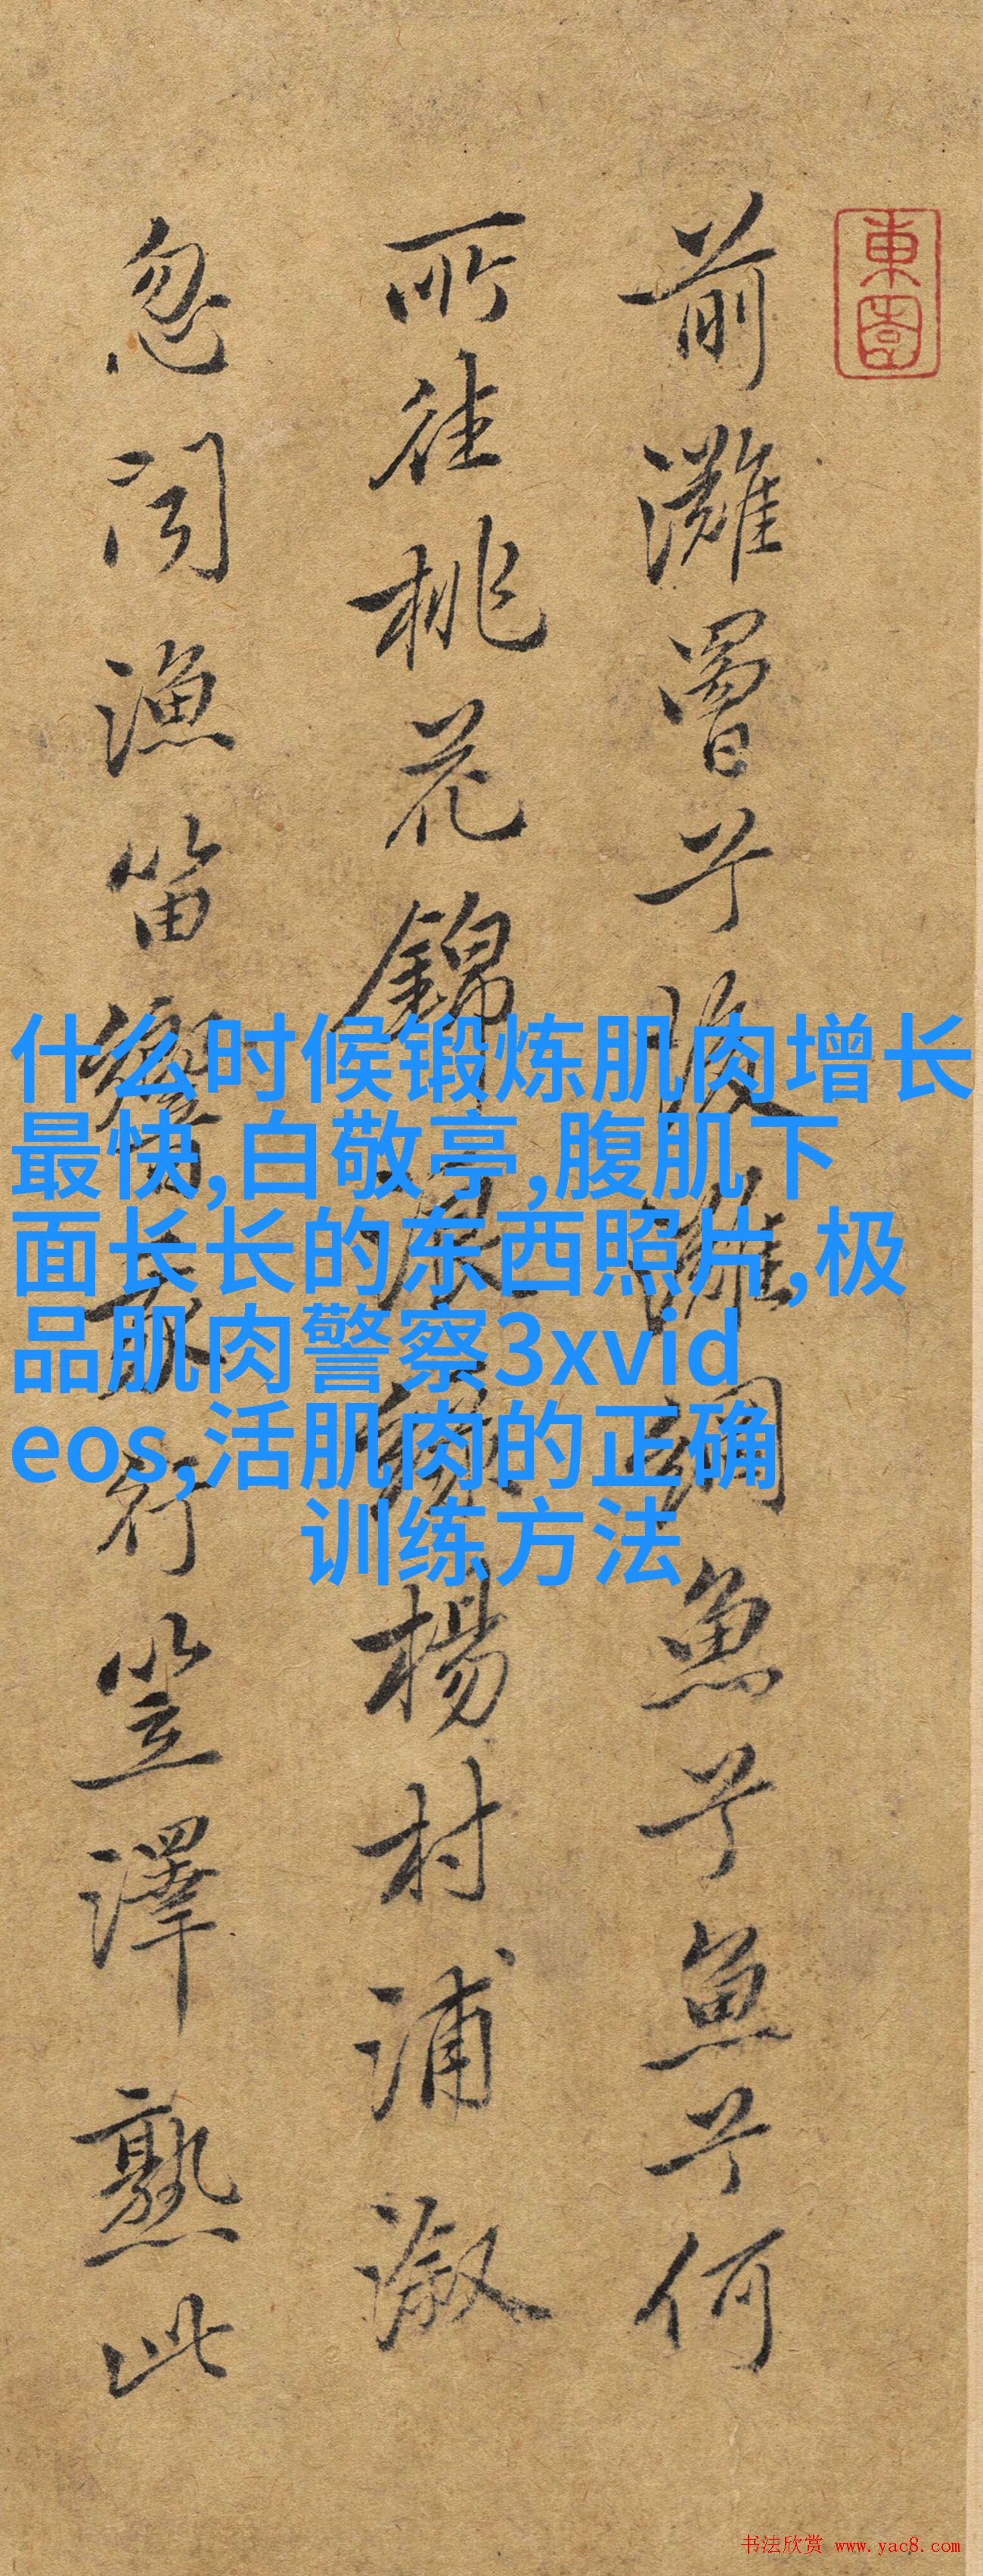 東
前灘罾兮後灘網魚兮魚兮何
所徃桃花錦浪綠楊村浦漵
忽聞漁笛響我行笠澤熟此
什么时候锻炼肌肉增长
最快,白敬亭,腹肌下
面长长的东西照片,极
品肌肉警察3xvid
eos,活肌肉的正确
训练方法
书法欣赏 www.yac8.com